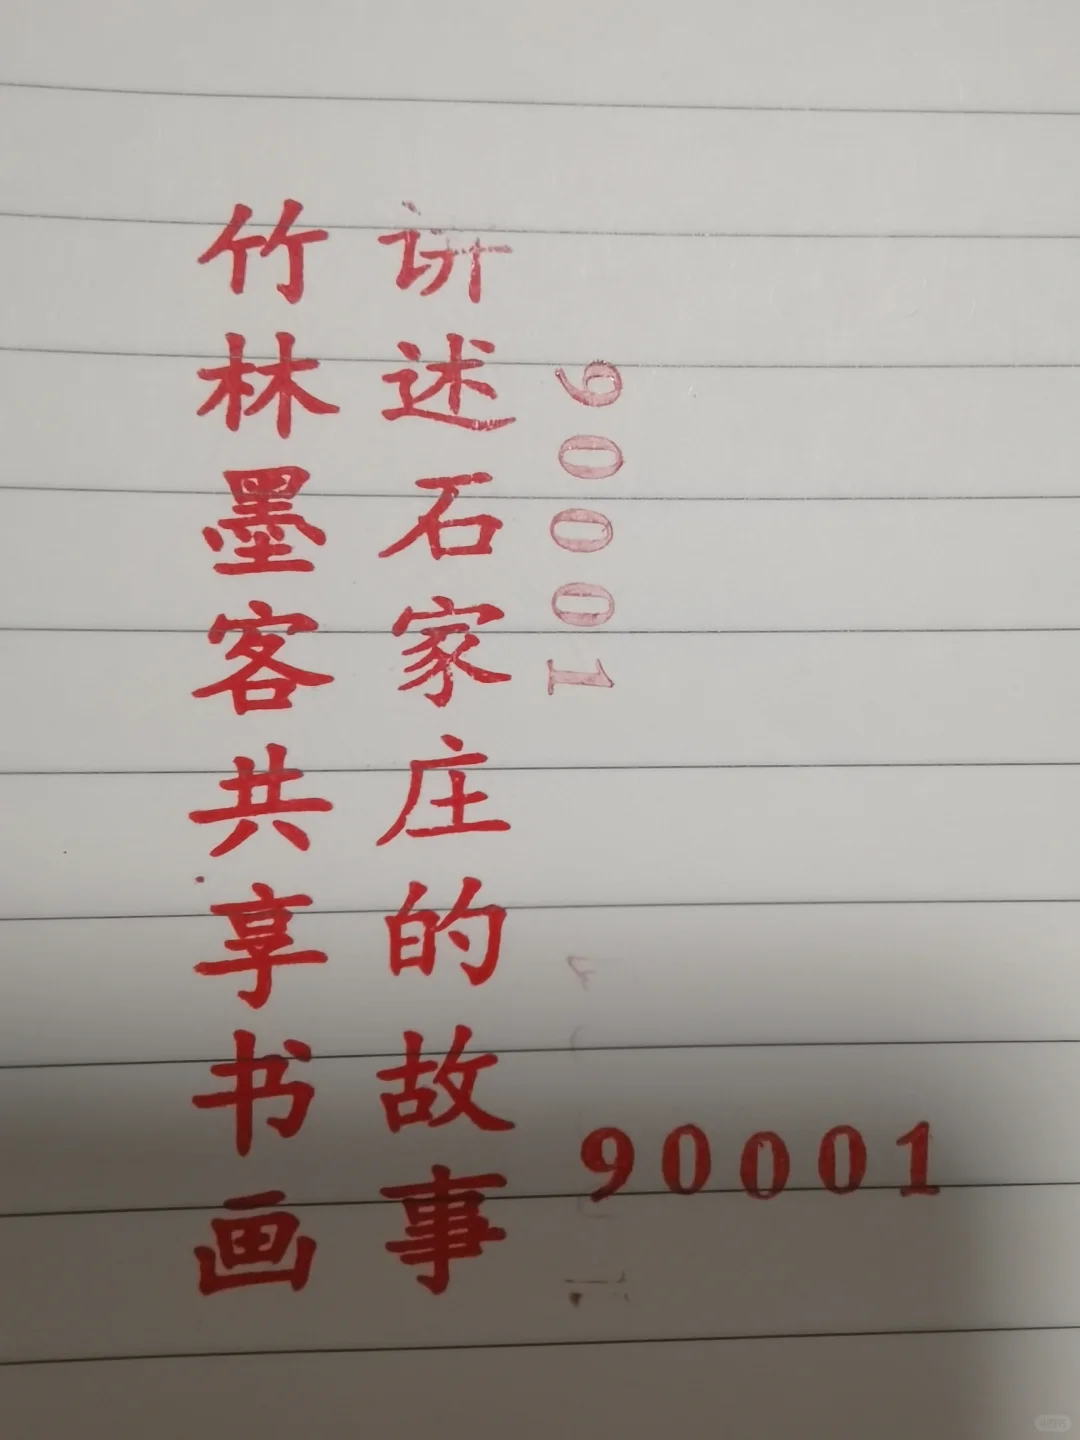 讲述石家庄的故事
竹林墨客共享书画
90001
90001